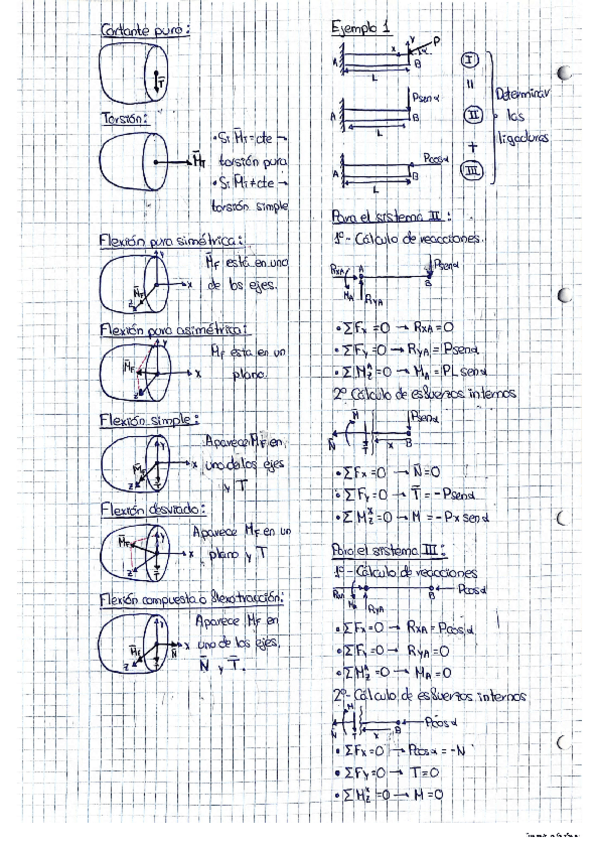 Cortante puro:
T
Torsión:
M_T
• Si M̄_T = cte →
torsión pura
• Si M̄_T ≠ cte →
torsión simple
Flexión pura simétrica:
M̄_F está en uno
de los ejes.
Y
X
Z
M̄_F
Flexión pura asimétrica:
M_F está en un
plano.
Y
X
Z
M̄_F
Flexión simple:
Aparece M_F en
uno de los ejes
y T
Y
X
Z
M̄_F
T
Flexión desviada:
Aparece M_F en un
plano y T
Y
X
Z
M̄_F
T
Flexión compuesta o flexotracción:
Aparece M_F en
uno de los ejes,
N̄ y T̄.
Y
X
Z
M̄_F
N̄
T
Ejemplo 1
Y
P
x
α
A
B
L
I
=
Psenα
A
B
L
II
+
Pcosα
A
B
L
III
Determinar
las
ligaduras
Para el sistema II:
1º- Cálculo de reacciones.
R_XA
A
Psenα
M_A
R_YA
B
• ΣF_x = 0 → R_XA = 0
• ΣF_y = 0 → R_YA = Psenα
• ΣM_z^A = 0 → M_A = PLsenα
2º Cálculo de esfuerzos internos
M
Psenα
N̄
T
x
B
• ΣF_x = 0 → N̄ = 0
• ΣF_y = 0 → T̄ = -Psenα
• ΣM_z^x = 0 → M = -Px senα
Para el sistema III:
1º- Cálculo de reacciones
R_XA
M_A
R_YA
B
Pcosα
• ΣF_x = 0 → R_XA = Pcosα
• ΣF_y = 0 → R_YA = 0
• ΣM_z^A = 0 → M_A = 0
2º- Cálculo de esfuerzos internos
M
N
T
x
B
Pcosα
• ΣF_x = 0 → Pcosα = -N
• ΣF_y = 0 → T = 0
• ΣM_z^x = 0 → M = 0